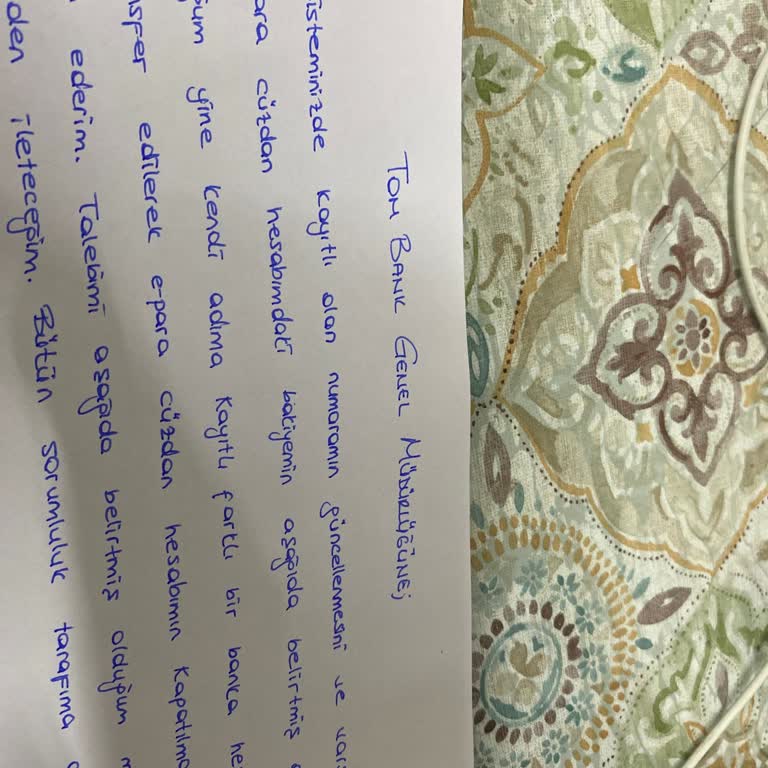 TOM BANK GENEL MÜDÜRLÜĞÜNE;
isteminizde kayıtlı olan numaramın güncellenmesini ve vars
ara cüzdan hesabımdaki bakiyemin aşağıda belirtmiş
ğum yine kendi adıma kayıtlı farklı bir banka he
sfer edilerek e-para cüzdan hesabımın kapatılma
ederim. Talebimi aşağıda belirtmiş olduğum m
den ileteceğim. Bütün sorumluluk tarafıma